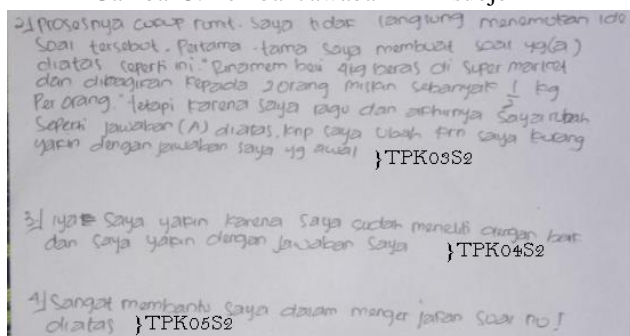 2) Prosesnya cukup rumit. Saya tidak langsung menemukan ide
soal tersebut. Pertama-tama saya membuat soal yg (a)
diatas seperti ini. "Rina membeli 4kg beras di super market
dan dibagikan kepada 20 orang miskin sebanyak 1/5 kg
Per orang." tetapi karena saya ragu dan akhirnya saya rubah
Seperti jawaban (A) diatas. knp saya ubah krn saya kurang
yakin dengan jawaban saya yg awal }TPK03S2
3) iya saya yakin karena saya sudah meneliti dengan baik
dan saya yakin dengan jawaban saya }TPK04S2
4) Sangat membantu saya dalam mengerjakan soal no 1
diatas }TPK05S2